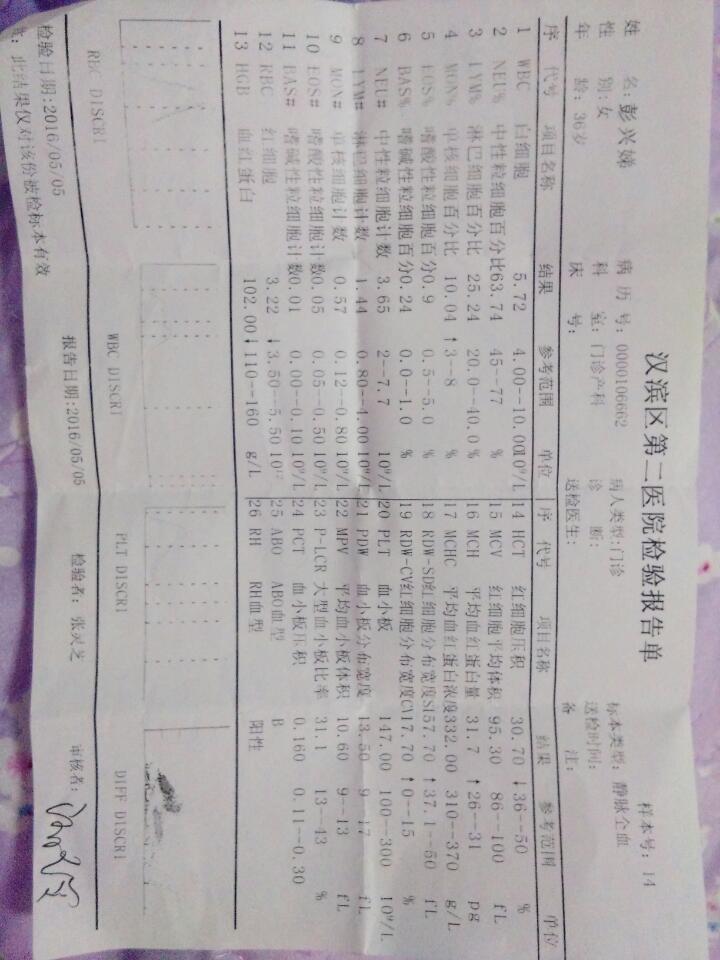 汉滨区第二医院检验报告单
样本号: 14
姓 名: 彭兴娣 病 历 号: 0000106662 病人类型: 门诊 标本类型: 静脉全血
性 别: 女 科 室: 门诊产科 诊 断: 送检时间:
年 龄: 36岁 床 号: 送检医生: 备 注:
序 代号 项目名称 结果 参考范围 单位 序 代号 项目名称 结果 参考范围 单位
1 WBC 白细胞 5.72 4.00--10.00 10⁹/L 14 HCT 红细胞压积 30.70 ↓ 36--50 %
2 NEU% 中性粒细胞百分比 63.74 45--77 % 15 MCV 红细胞平均体积 95.30 86--100 fL
3 LYM% 淋巴细胞百分比 25.24 20.0--40.0 % 16 MCH 平均血红蛋白量 31.7 ↑ 26--31 pg
4 MON% 单核细胞百分比 10.04 ↑ 3--8 % 17 MCHC 平均血红蛋白浓度 332.00 310--370 g/L
5 EOS% 嗜酸性粒细胞百分 0.9 0.5--5.0 % 18 RDW-SD 红细胞分布宽度S 57.70 ↑ 37.1--50 fL
6 BAS% 嗜碱性粒细胞百分 0.24 0.0--1.0 % 19 RDW-CV 红细胞分布宽度C 17.70 ↑ 0--15 %
7 NEU# 中性粒细胞计数 3.65 2--7.7 10⁹/L 20 PLT 血小板 147.00 100--300 10⁹/L
8 LYM# 淋巴细胞计数 1.44 0.80--4.00 10⁹/L 21 PDW 血小板分布宽度 13.50 9--17 fL
9 MON# 单核细胞计数 0.57 0.12--0.80 10⁹/L 22 MPV 平均血小板体积 10.60 9--13 fL
10 EOS# 嗜酸性粒细胞计数 0.05 0.05--0.50 10⁹/L 23 P-LCR 大型血小板比率 31.1 13--43 %
11 BAS# 嗜碱性粒细胞计数 0.01 0.00--0.10 10⁹/L 24 PCT 血小板压积 0.160 0.11--0.30
12 RBC 红细胞 3.22 ↓ 3.50--5.50 10¹² 25 ABO ABO血型 B
13 HGB 血红蛋白 102.00 ↓ 110--160 g/L 26 RH RH血型 阳性
RBC DISCRI WBC DISCRI PLT DISCRI DIFF DISCRI
检验日期: 2016/05/05 报告日期: 2016/05/05 检验者: 张灵芝 审核者:
: 此结果仅对该份被检标本有效